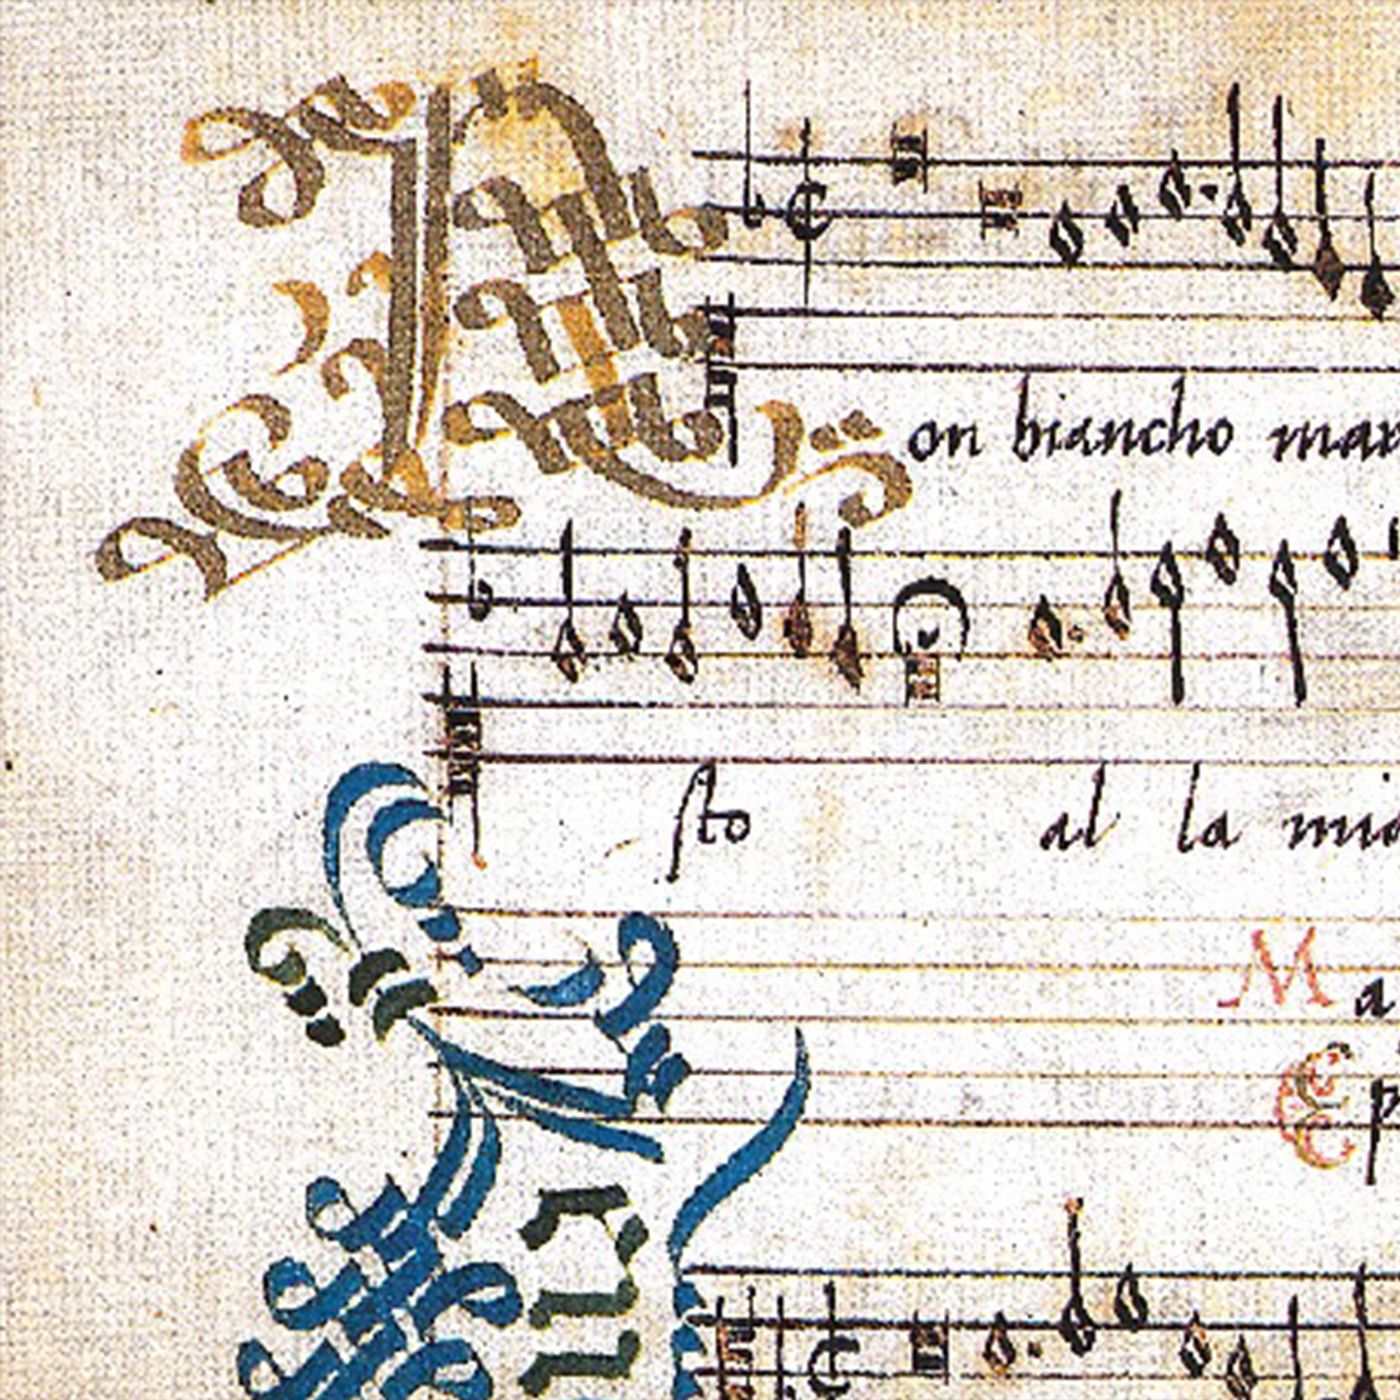 Non biancho mar
sto al la mia
Ma
Ep